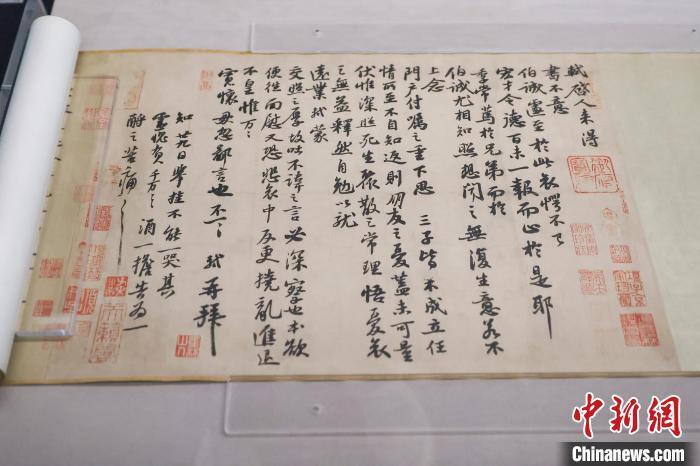 軾啓人来得
書不意
伯誠遽至於此哀愕不已
宏才令德百未一報而止於是耶
季常篤於兄弟而於
伯誠尤相知照想聞之無復生意若不
上念
門户付囑之重下思三子皆未成立任
情所至不自知返則朋友之憂蓋未可量
伏惟深照死生聚散之常理悟憂哀
之無益釋然自勉以就
遠業軾蒙
交照之厚故吐不諱之言必深察也本欲
便往面慰又恐悲哀中反更撓亂進退
不皇惟万々
寬懷毋忽鄙言也不一々 軾再拜
知廿九日舉挂不能一哭其
靈愧負千万々酒一擔告為一
酹之苦痛々
中新网
Chinanews.com